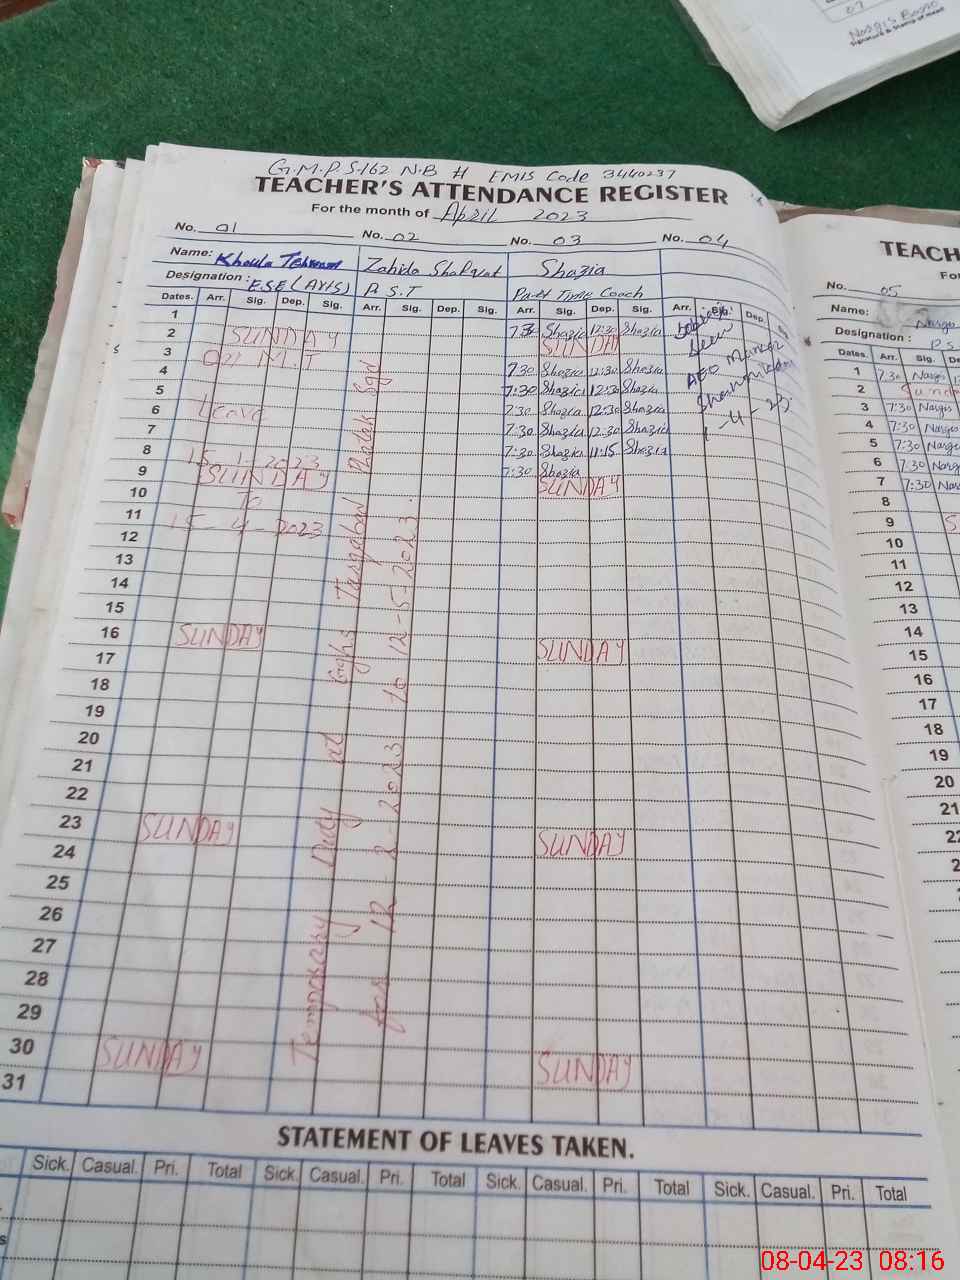 07
Nargis Bano
Signature & Stamp of Head
G.M.P.S-162 N.B # EMIS Code 3440237
TEACHER'S ATTENDANCE REGISTER
For the month of April 2023
No. 01 No. 02 No. 03 No. 04
Name: Khoula Zahida Shafqat Shazia
Designation: E.S.E (Arts) P.S.T Part Time Coach
Dates. Arr. Sig. Dep. Sig. Arr. Sig. Dep. Sig. Arr. Sig. Dep. Sig. Arr. Sig. Dep.
1 7:30 Shazia 12:30 Shazia
2 SUNDAY SUNDAY
3 On M.T 7:30 Shazia 12:30 Shazia
4 7:30 Shazia 12:30 Shazia
5 Leave 7:30 Shazia 12:30 Shazia
6 7:30 Shazia 12:30 Shazia
7 7:30 Shazia 11:15 Shazia
8 2023 7:30 Shazia
9 SUNDAY SUNDAY
10 To
11 15-4-2023
12
13
14
15
16 SUNDAY SUNDAY
17
18
19
20
21
22
23 SUNDAY SUNDAY
24
25
26
27
28
29
30 SUNDAY SUNDAY
31
Temporary Duty at
for 12-2-2023 to 12-5-2023
Seen
AEO
STATEMENT OF LEAVES TAKEN.
Sick. Casual. Pri. Total Sick. Casual. Pri. Total Sick. Casual. Pri. Total Sick. Casual. Pri. Total
TEACH
No. 05
Name: Narge
Designation: P.S
Dates. Arr. Sig. De
1 7:30 Nargis
2 Sund
3 7:30 Nargis
4 7:30 Nargis
5 7:30 Nargis
6 7:30 Nargis
7 7:30 Nar
8
9 S
10
11
12
13
14
15
16
17
18
19
20
21
22
08-04-23 08:16